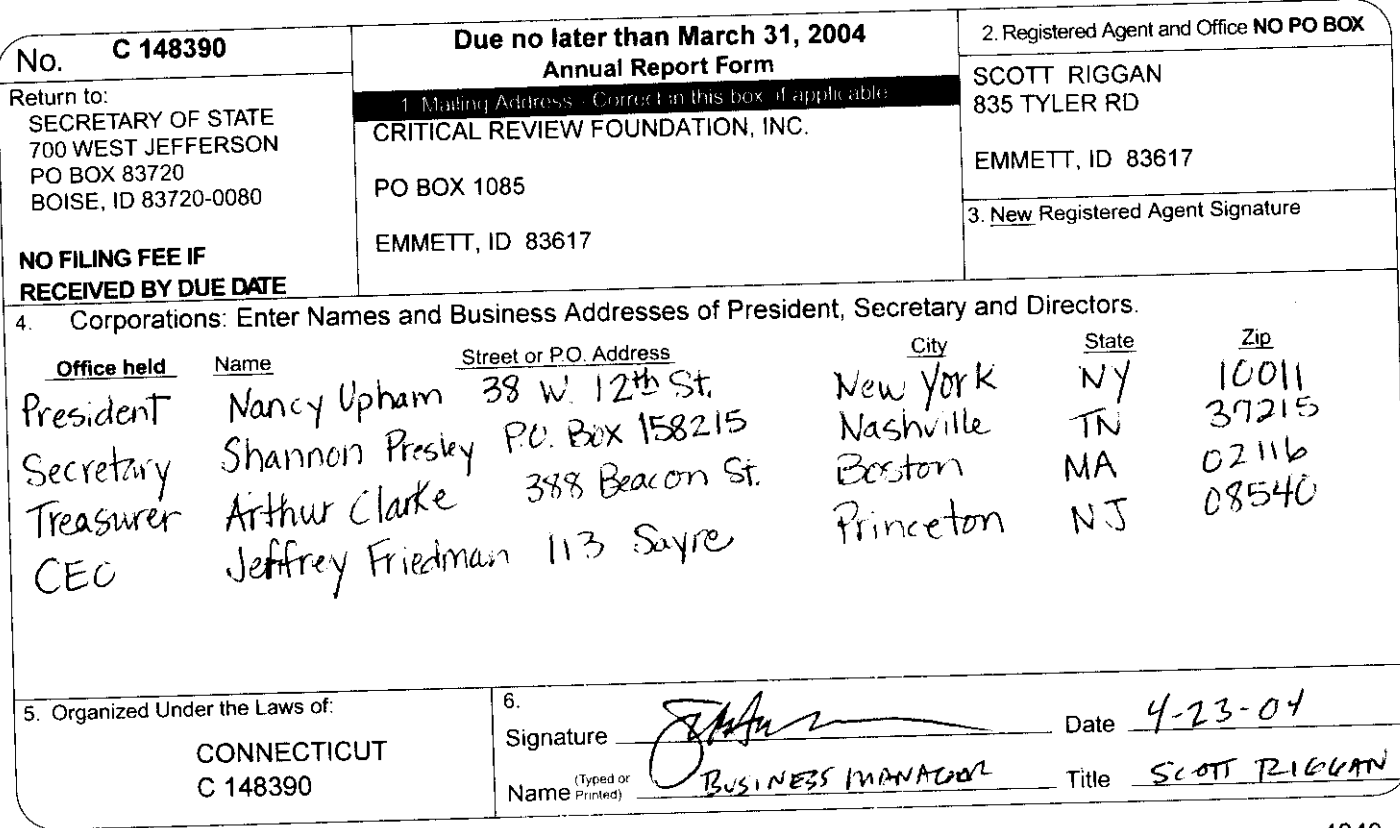 No. C 148390
Return to:
SECRETARY OF STATE
700 WEST JEFFERSON
PO BOX 83720
BOISE, ID 83720-0080
NO FILING FEE IF
RECEIVED BY DUE DATE
Due no later than March 31, 2004
Annual Report Form
1. Mailing Address - Correct in this box, if applicable
CRITICAL REVIEW FOUNDATION, INC.
PO BOX 1085
EMMETT, ID 83617
2. Registered Agent and Office NO PO BOX
SCOTT RIGGAN
835 TYLER RD
EMMETT, ID 83617
3. New Registered Agent Signature
4. Corporations: Enter Names and Business Addresses of President, Secretary and Directors.
Office held Name Street or P.O. Address City State Zip
President Nancy Upham 38 W. 12th St. New York NY 10011
Secretary Shannon Presley P.O. Box 158215 Nashville TN 37215
Treasurer Arthur Clarke 388 Beacon St. Boston MA 02116
CEO Jeffrey Friedman 113 Sayre Princeton NJ 08540
5. Organized Under the Laws of:
CONNECTICUT
C 148390
6.
Signature Date 4-23-04
Name (Typed or Printed) BUSINESS MANAGER Title SCOTT RIGGAN